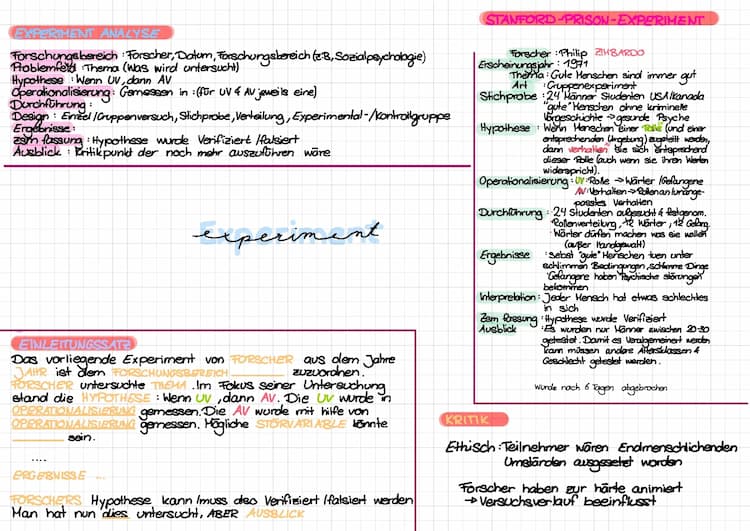 EXPERIMENT ANALYSE
Forschungsbereich : Forscher, Datum, Forschungsbereich (z.B. Sozialpsychologie)
Problemfeld : Thema (Was wird untersucht)
Hypothese : Wenn UV, dann AV
Operationalisierung : Gemessen in : (für UV & AV jeweils eine)
Durchführung :
Design : Einzel / Gruppenversuch, Stichprobe, Verteilung, Experimental-/Kontrollgruppe
Ergebnisse :
zsm fassung : Hypothese wurde Verifiziert / falsiert
Ausblick : Kritikpunkt der noch mehr auszuführen wäre
experiment
EINLEITUNGSSATZ
Das vorliegende Experiment von FORSCHER aus dem Jahre
JAHR ist dem FORSCHUNGSBEREICH ______ zuzuordnen.
FORSCHER untersuchte THEMA. Im Fokus seiner Untersuchung
stand die HYPOTHESE : Wenn UV, dann AV. Die UV wurde in
OPERATIONALISIERUNG gemessen. Die AV wurde mit hilfe von
OPERATIONALISIERUNG gemessen. Mögliche STÖRVARIABLE könnte
______ sein.
....
ERGEBNISSE ...
FORSCHERS Hypothese kann / muss das Verifiziert / falsiert werden
Man hat nun dies untersucht, ABER AUSBLICK
STANFORD-PRISON-EXPERIMENT
Forscher : Philip ZIMBARDO
Erscheinungsjahr : 1971
Thema : Gute Menschen sind immer gut
Art : Gruppenexperiment
Stichprobe : 24 Männer Studenten USA/Kanada
"gute" Menschen ohne kriminelle
Vorgeschichte → gesunde Psyche
Hypothese : Wenn Menschen einer Rolle (und einer
entsprechenden Umgebung) zugeteilt werden,
dann verhalten sie sich entsprechend
dieser Rolle (auch wenn sie ihren Werten
widerspricht).
Operationalisierung : UV: Rolle → Wärter / Gefangene
AV: Verhalten → Rollen an/unange-
passtes Verhalten
Durchführung : 24 Studenten aufgesucht & festgenom.
Rollenverteilung, 12 Wärter, 12 Gefang.
Wärter dürfen machen was sie wollen
(außer Handgewalt)
Ergebnisse : selbst "gute" Menschen tuen unter
schlimmen Bedingungen, schlimme Dinge
Gefangene haben Psychische störungen
bekommen
Interpretation : Jeder Mensch hat etwas schlechtes
in sich
Zsm fassung : Hypothese wurde Verifiziert
Ausblick : Es wurden nur Männer zwischen 20-30
getestet. Damit es Veralgemeinert werden
kann müssen andere Altersklassen &
Geschlecht getestet werden.
Wurde nach 6 Tagen abgebrochen
KRITIK
Ethisch : Teilnehmer wären Endmenschlichenden
Umständen ausgesetzt worden
Forscher haben zur härte animiert
→ Versuchsverlauf beeinflusst